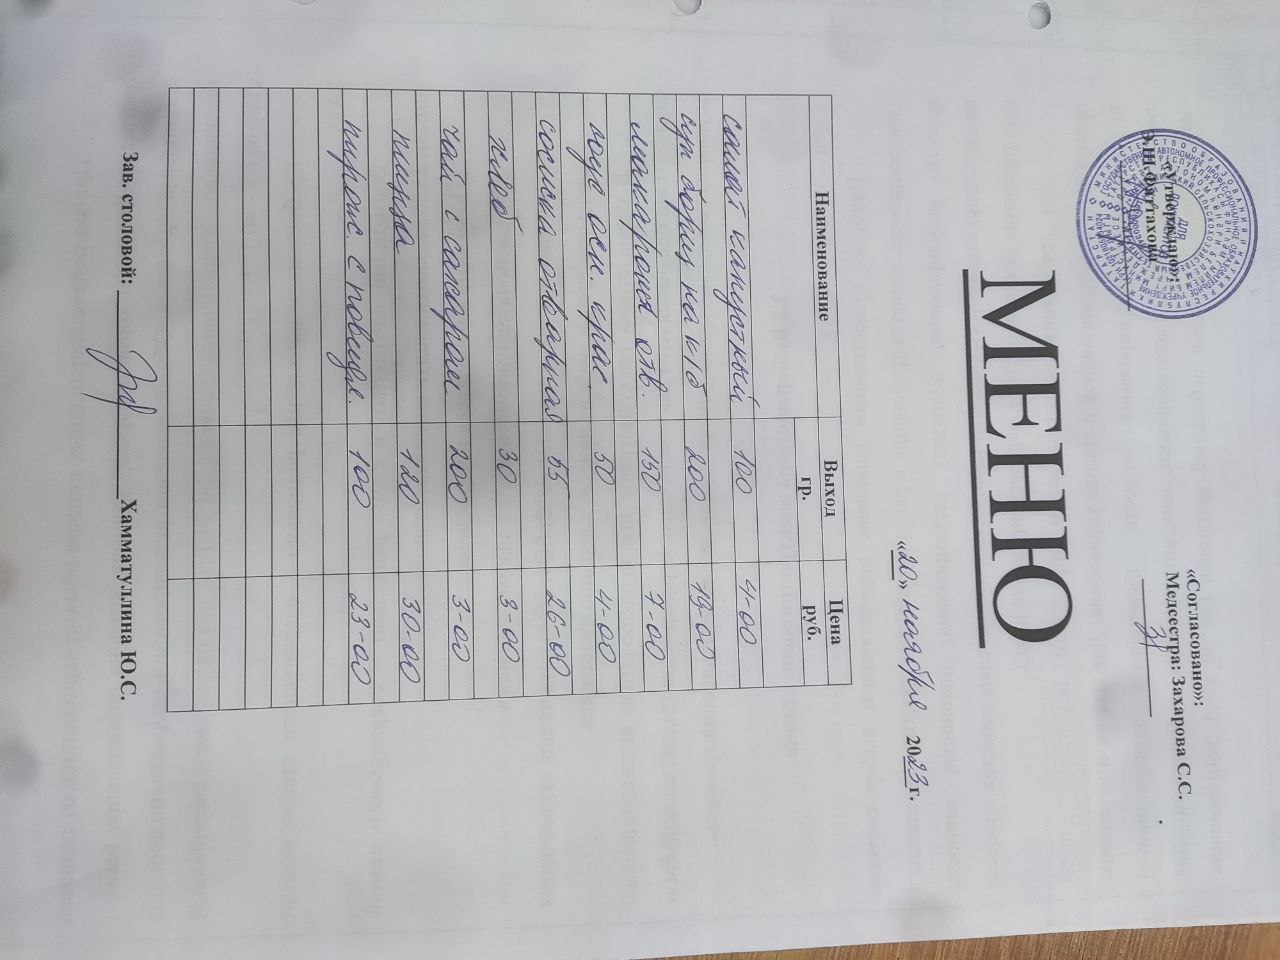 «Утверждаю»:
Э.Ш.Фаттахова
«Согласовано»:
Медсестра: Захарова С.С.
МЕНЮ
«20» ноября 2023 г.
Наименование Выход гр. Цена руб.
салат капустный 100 4-00
суп борщ на к/б 200 19-00
макароны отв. 150 7-00
соус осн. крас. 50 4-00
сосиска отварная 55 26-00
хлеб 30 3-00
чай с сахаром 200 3-00
пицца 120 30-00
пирож. с повидл. 100 23-00
Зав. столовой: Хамматуллина Ю.С.